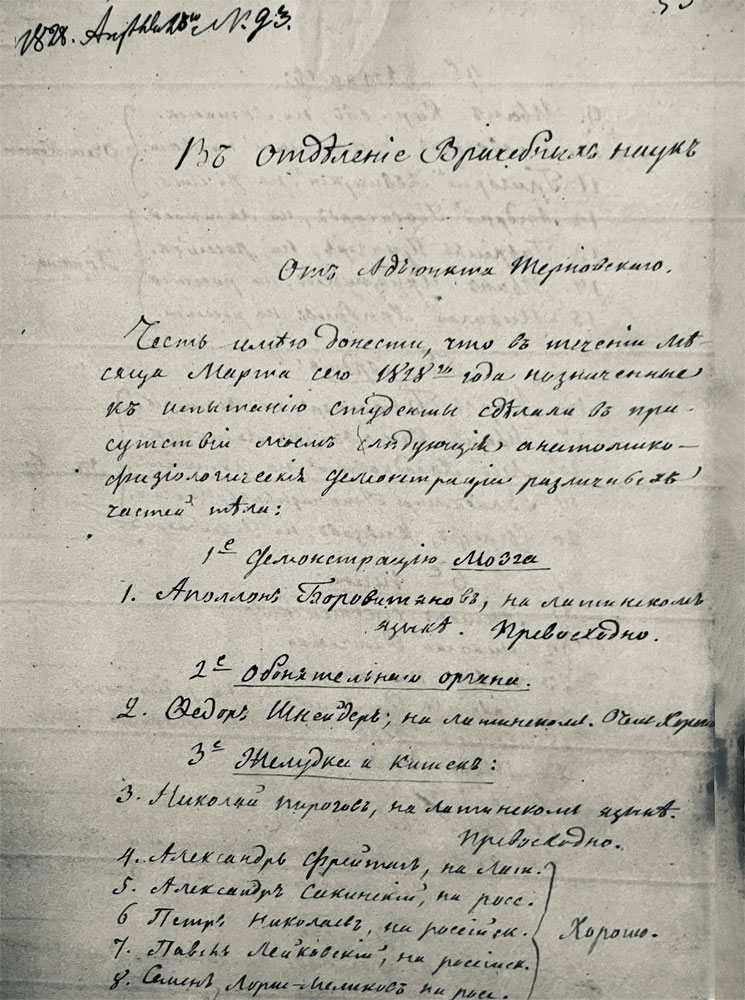 1828. Апрѣля 18го N. 93.
Въ отдѣленіе Врачебныхъ наукъ
Отъ Адъюнкта Терновскаго.
Честь имѣю донести, что въ теченіи мѣ-
сяца Марта сего 1828го года назначенные
къ испытанію студенты сдѣлали въ при-
сутствій моемъ слѣдующія анатомико-
физіологическія демонстраціи различныхъ
частей тѣла:
1е демонстрацію Мозга
1. Аполлонъ Боровитяновъ, на латинскомъ
языкѣ. Превосходно.
2е Обонятельнаго органа.
2. Ѳедоръ Шнейдеръ, на латинскомъ. Очень Хорошо
3е Желудка и кишекъ:
3. Николай Пироговъ, на латинскомъ языкѣ.
Превосходно.
4. Александръ Фрейтагъ, на лат.
5. Александръ Сакинскій, на росс.
6 Петръ Николаевъ, на россійск. Хорошо.
7. Павелъ Лейковскій, на россійск.
8. Семенъ Лорис-Меликовъ на росс.